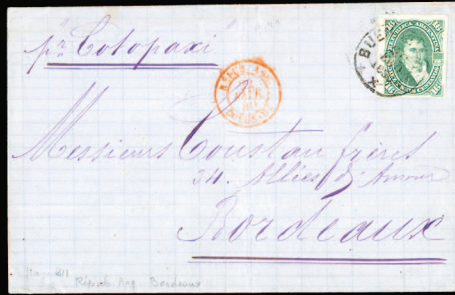 pr Cotopaxi
BUEN
REPUBLICA ARGENTINA
Messieurs Coustau frères
34. Allées d'Amour
Bordeaux
Répub. Arg Bordeaux